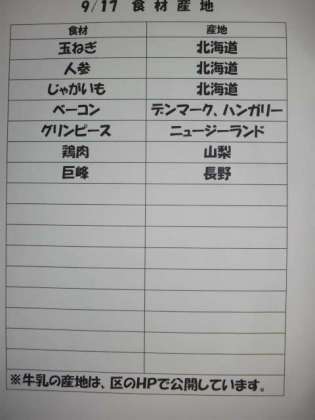 9/17 食材産地
食材 産地
玉ねぎ 北海道
人参 北海道
じゃがいも 北海道
ベーコン デンマーク、ハンガリー
グリンピース ニュージーランド
鶏肉 山梨
巨峰 長野
※牛乳の産地は、区のHPで公開しています。